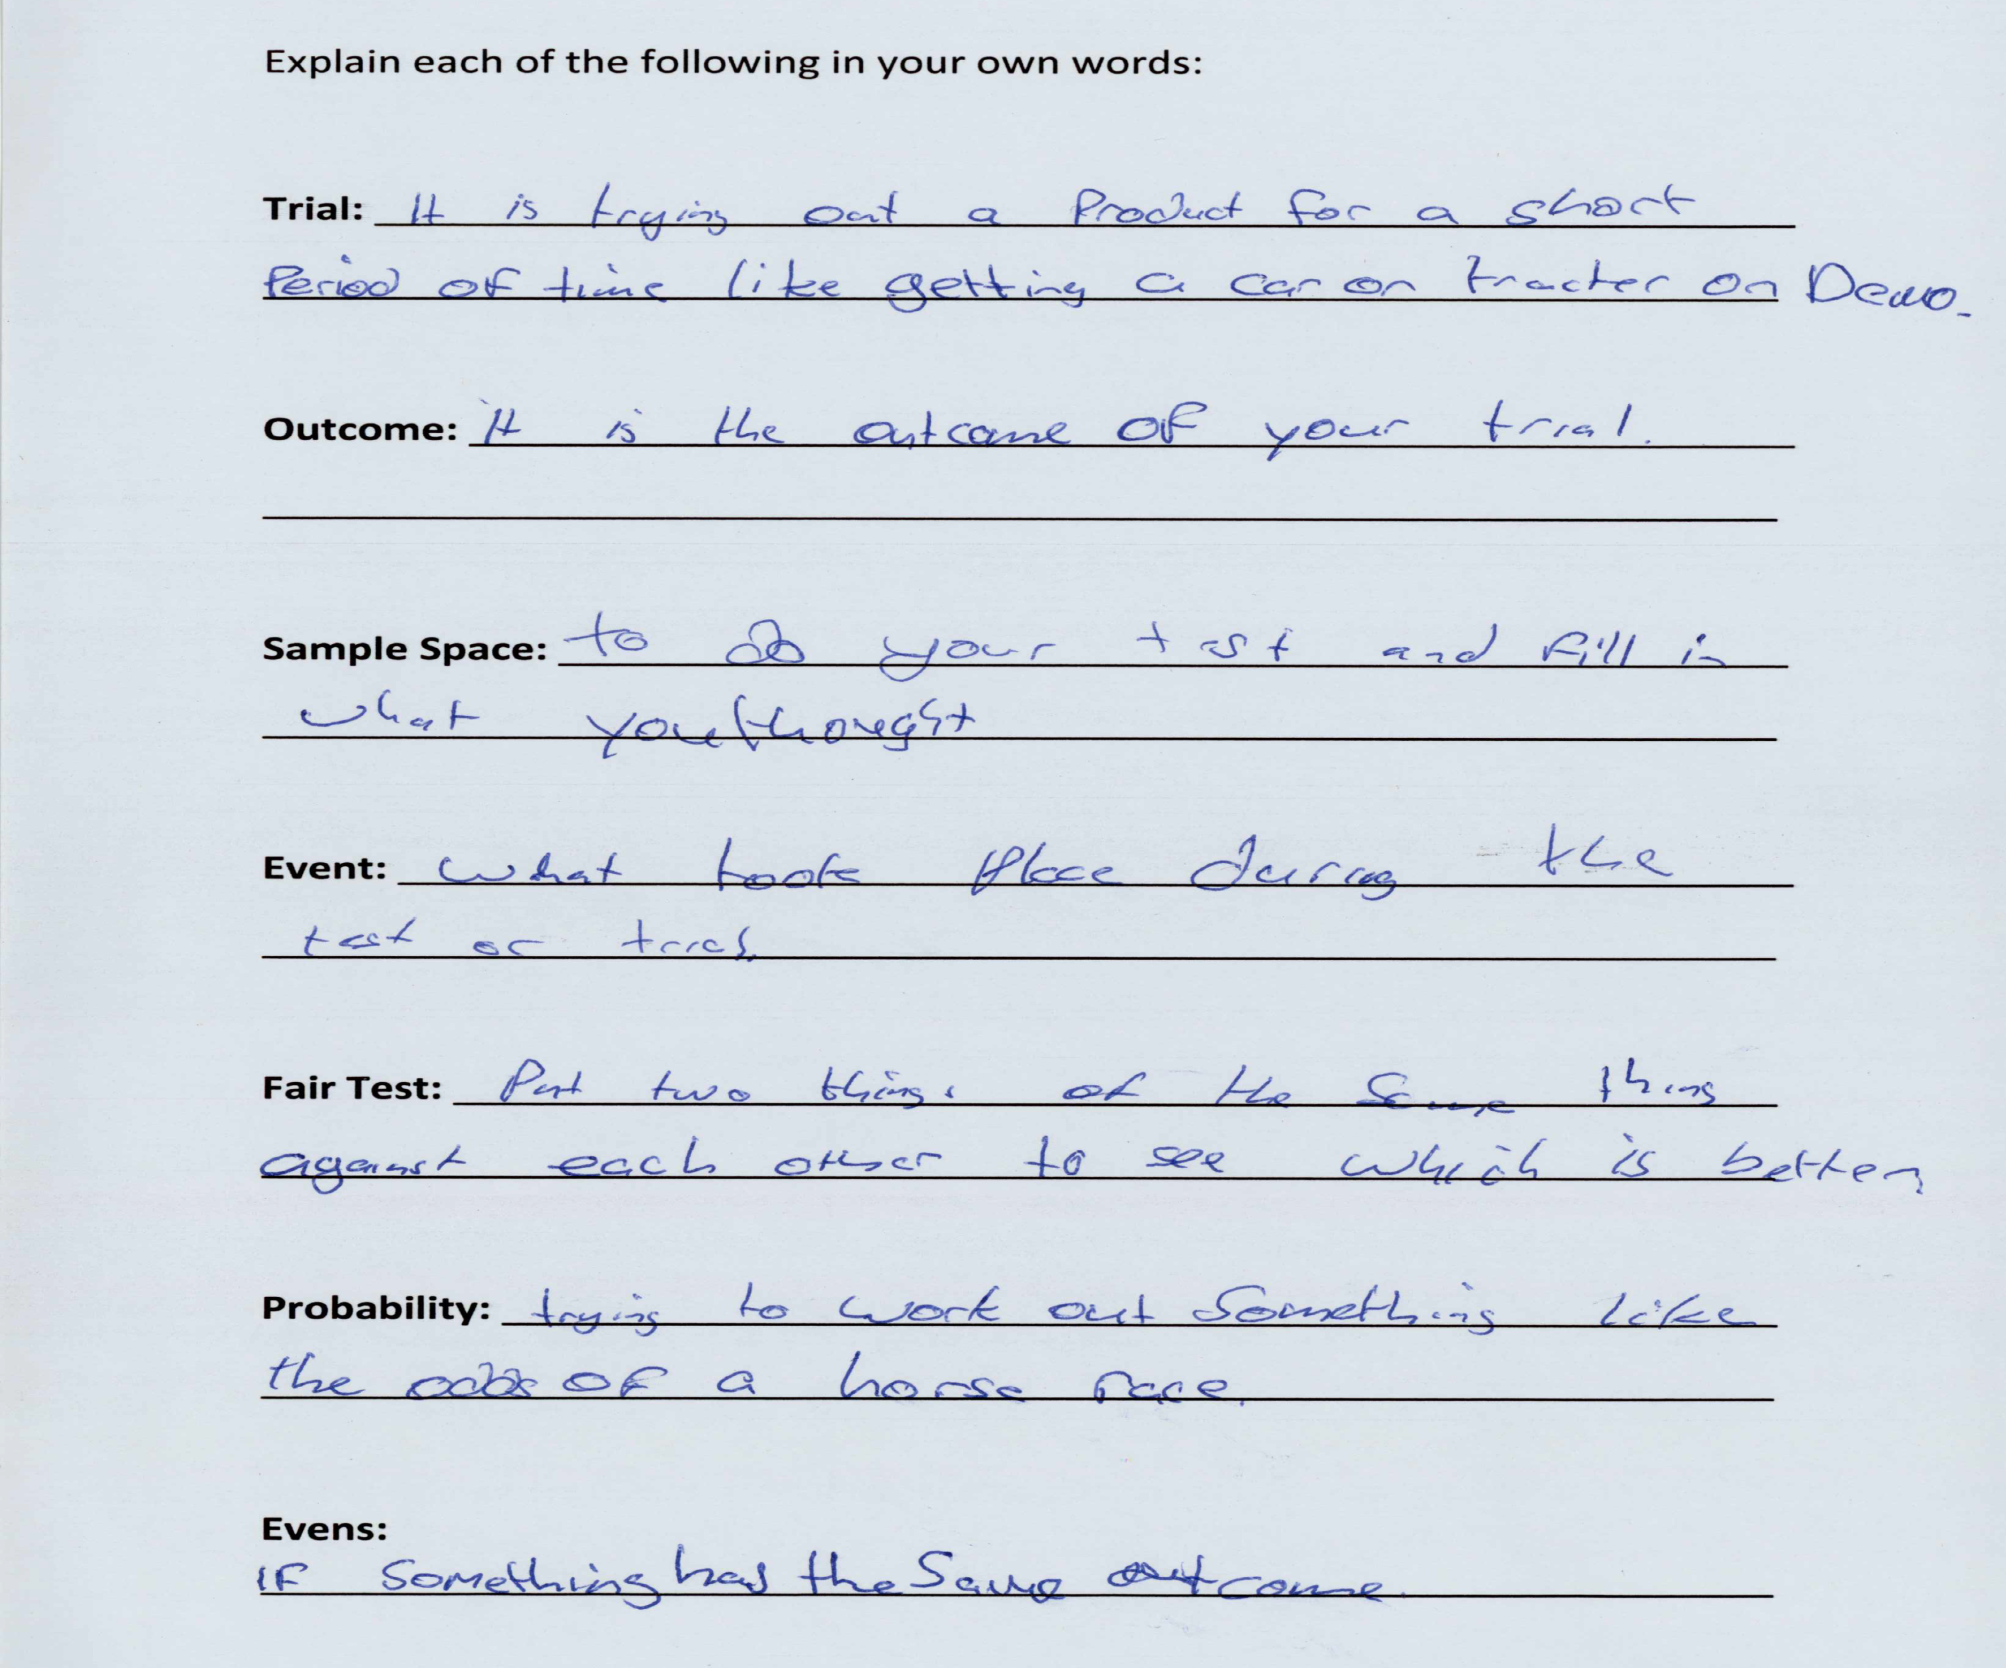 Explain each of the following in your own words:
Trial: It is trying out a Product for a short
Period of time like getting a car or tracter on Demo.
Outcome: It is the outcome of your trial.
Sample Space: to do your test and fill in
what you thought
Event: what took place during the
test or trial.
Fair Test: Put two things of the same thing
against each other to see which is better
Probability: trying to work out Something like
the odds of a horse race.
Evens:
IF Something has the Same outcome.